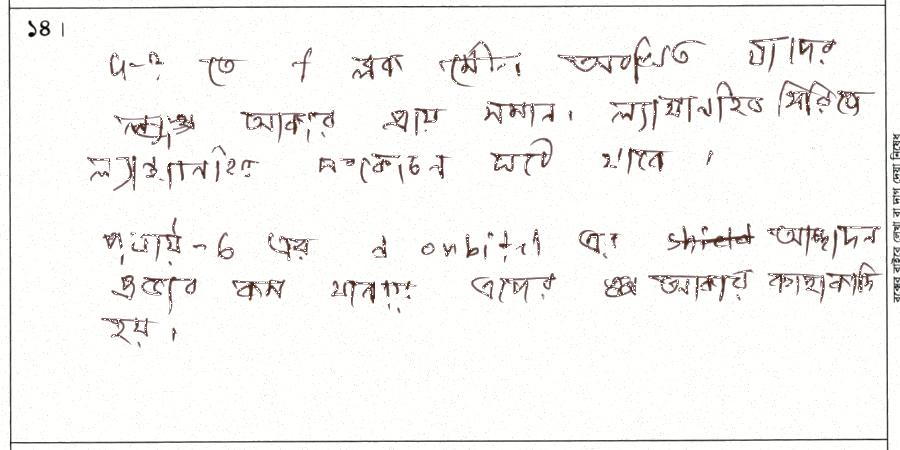 ১৪।
তে f ব্লক মৌল অবস্থিত যাদের
আকার প্রায় সমান। ল্যান্থানাইড সিরিজে
ল্যান্থানাইড সংকোচন ঘটে থাকে।
পর্যায়-6 এর d orbital এর shield আচ্ছাদন
প্রভাব কম থাকায় এদের আকার কাছাকাছি
হয়।
বক্সের বাইরে লেখা বা দাগ দেয়া নিষেধ